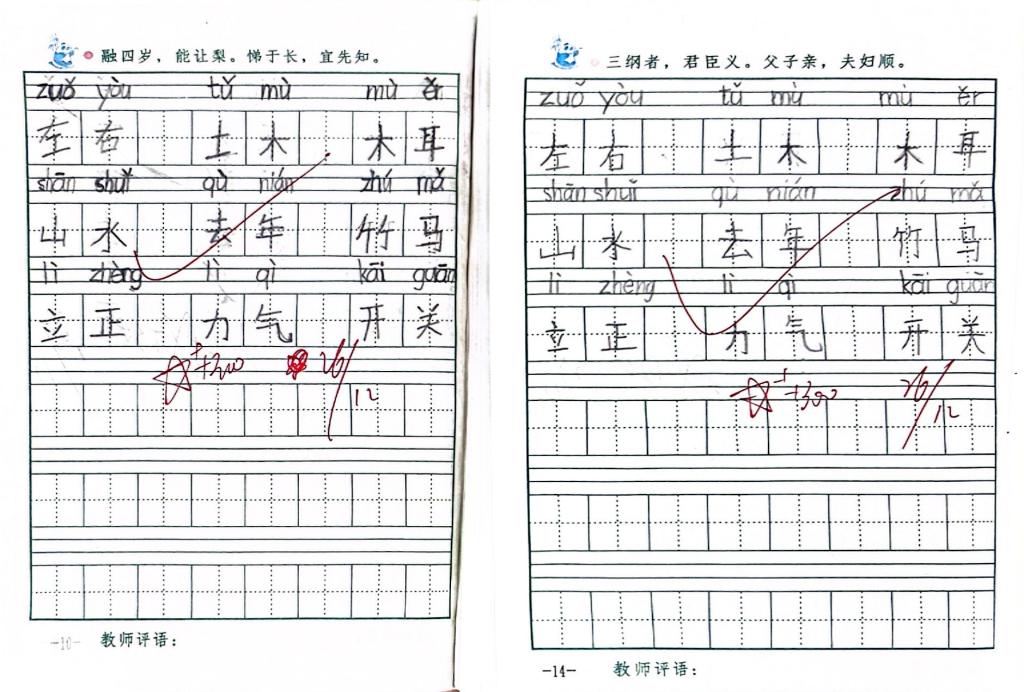 融四岁，能让梨。悌于长，宜先知。
zuǒ yòu tǔ mù mù ěr
左右 土木 木耳
shān shuǐ qù nián zhú mǎ
山水 去年 竹马
lì zhèng lì qì kāi guān
立正 力气 开关
+300 26/12
-10- 教师评语：
三纲者，君臣义。父子亲，夫妇顺。
zuǒ yòu tǔ mù mù ěr
左右 土木 木耳
shān shuǐ qù nián zhú mǎ
山水 去年 竹马
lì zhèng lì qì kāi guān
立正 力气 开关
+300 26/12
-14- 教师评语：